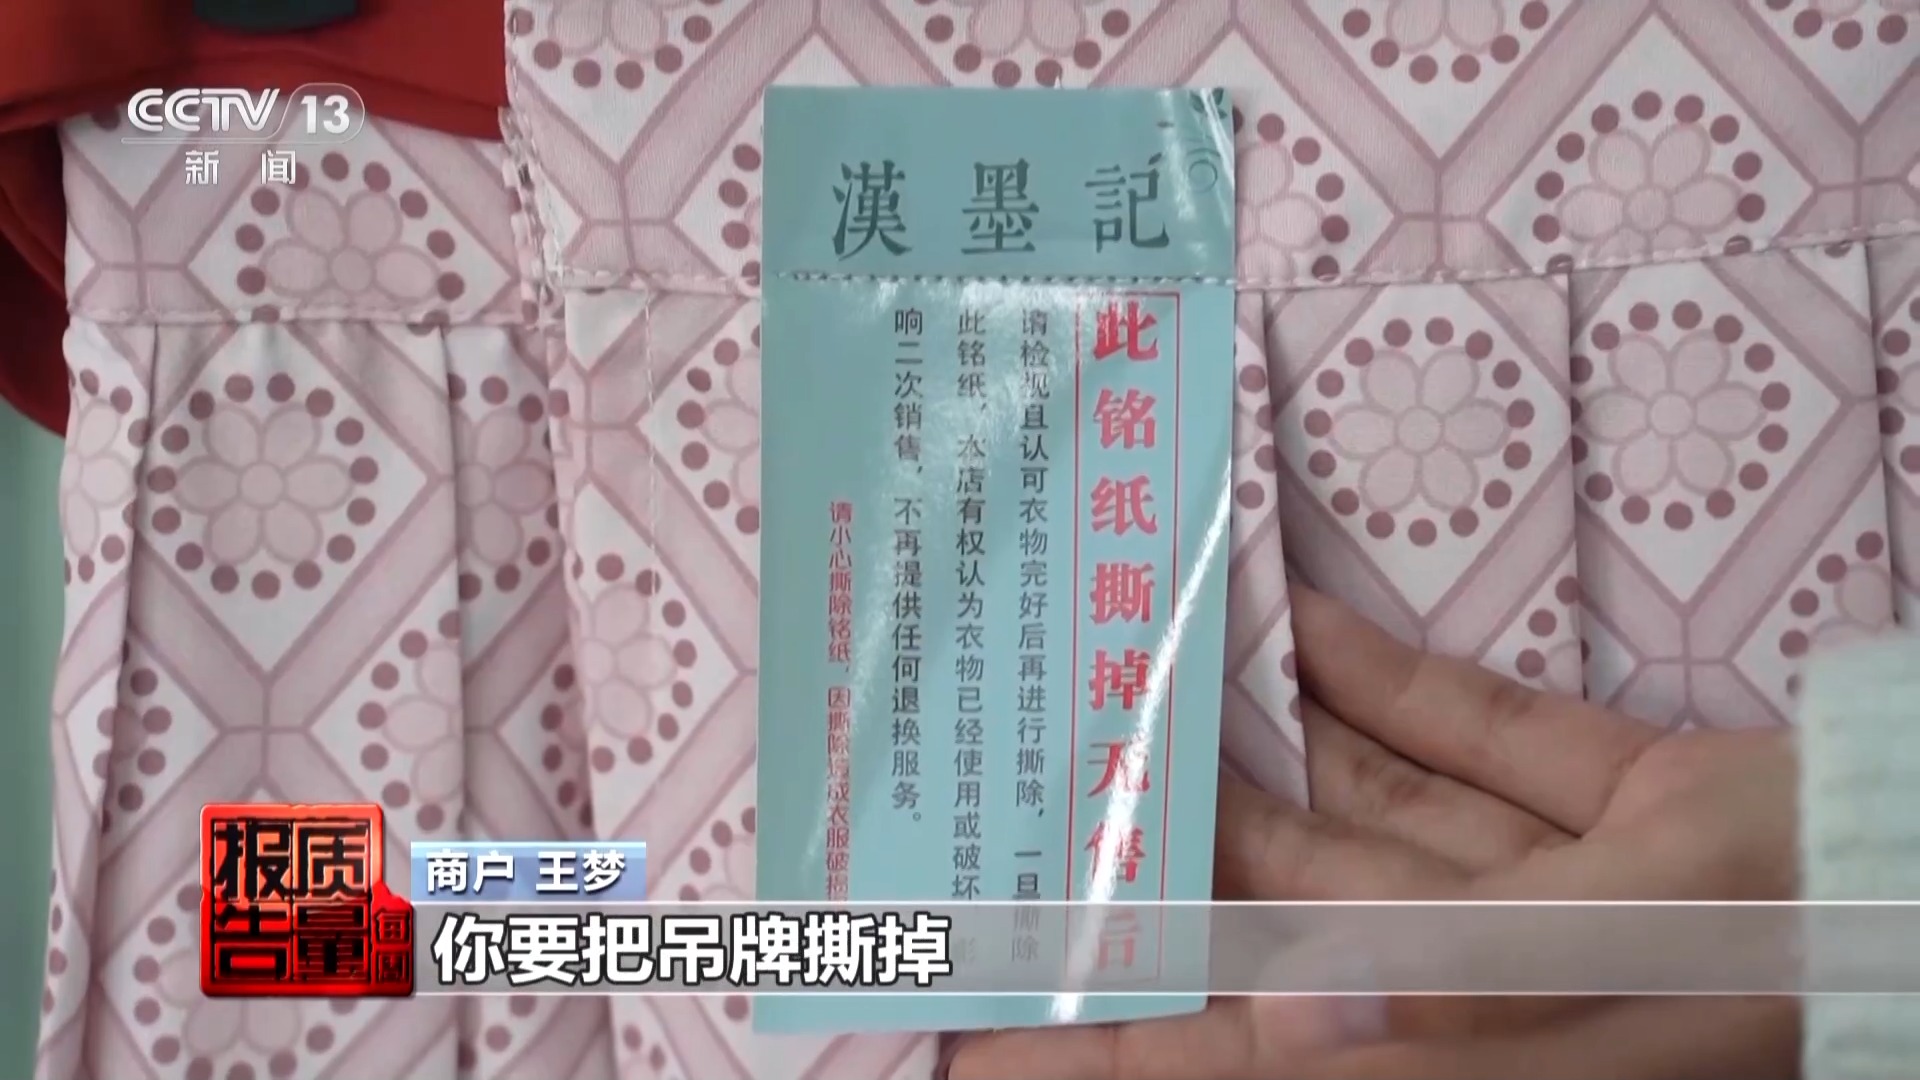 CCTV 13
新闻
漢墨記
此铭纸撕掉无售后
请检视且认可衣物完好后再进行撕除，一旦撕除
此铭纸，本店有权认为衣物已经使用或破坏，影
响二次销售，不再提供任何退换服务。
请小心撕除铭纸，因撕除造成衣服破损
每周
质量
报告
商户 王梦
你要把吊牌撕掉